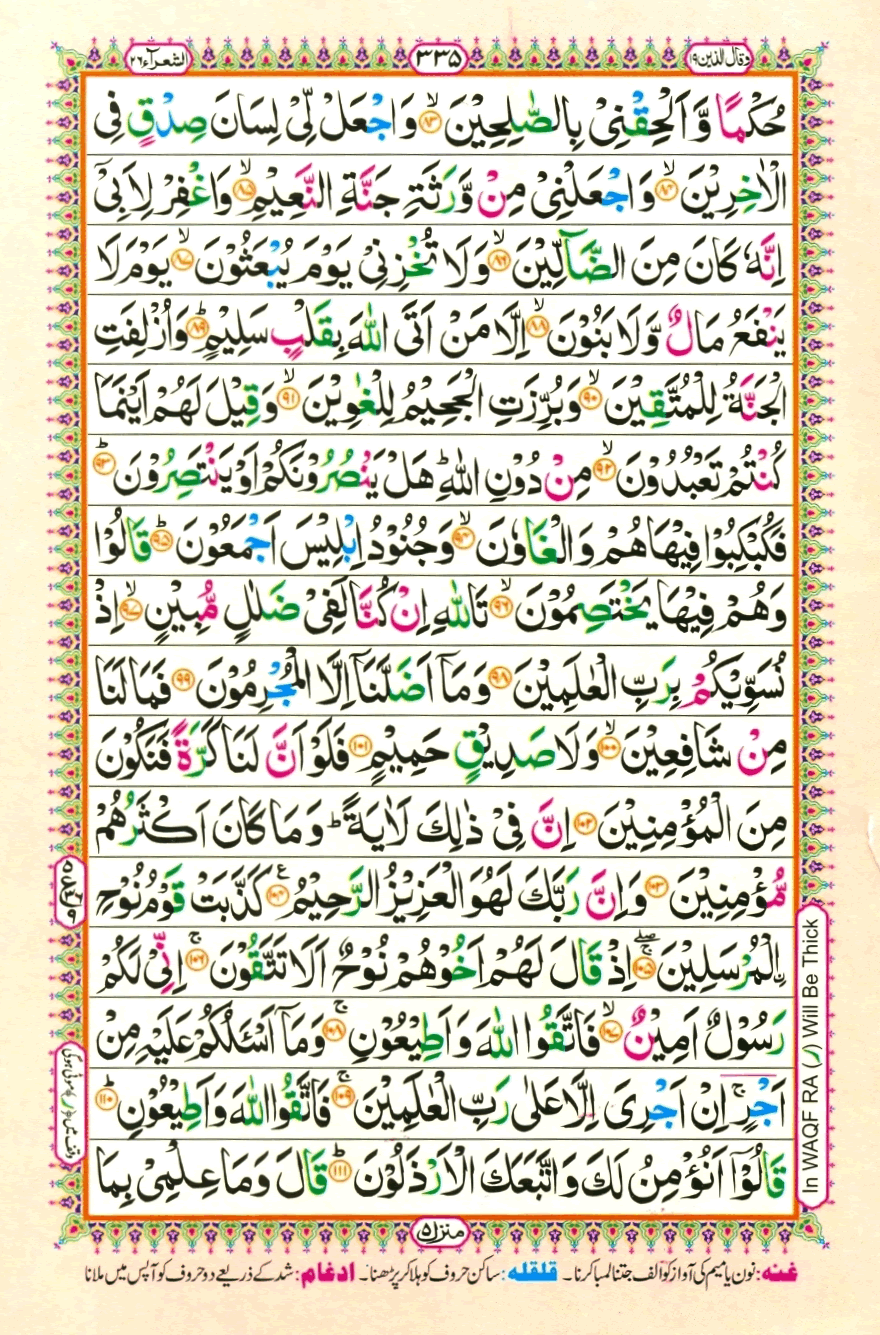 الشعرآء ٢٦
٣٣٥
وقال الذين ١٩
حُكْمًا وَّ اَلْحِقْنِیْ بِالصّٰلِحِیْنَ ۙ﴿۸۳﴾ وَ اجْعَلْ لِّیْ لِسَانَ صِدْقٍ فِی
الْاٰخِرِیْنَ ۙ﴿۸۴﴾ وَ اجْعَلْنِیْ مِنْ وَّرَثَةِ جَنَّةِ النَّعِیْمِ ۙ﴿۸۵﴾ وَ اغْفِرْ لِاَبِیْۤ
اِنَّهٗ كَانَ مِنَ الضَّآلِّیْنَ ۙ﴿۸۶﴾ وَ لَا تُخْزِنِیْ یَوْمَ یُبْعَثُوْنَ ۙ﴿۸۷﴾ یَوْمَ لَا
یَنْفَعُ مَالٌ وَّ لَا بَنُوْنَ ۙ﴿۸۸﴾ اِلَّا مَنْ اَتَی اللّٰهَ بِقَلْبٍ سَلِیْمٍ ؕ﴿۸۹﴾ وَ اُزْلِفَتِ
الْجَنَّةُ لِلْمُتَّقِیْنَ ۙ﴿۹۰﴾ وَ بُرِّزَتِ الْجَحِیْمُ لِلْغٰوِیْنَ ۙ﴿۹۱﴾ وَ قِیْلَ لَهُمْ اَیْنَمَا
كُنْتُمْ تَعْبُدُوْنَ ۙ﴿۹۲﴾ مِنْ دُوْنِ اللّٰهِ ؕ هَلْ یَنْصُرُوْنَكُمْ اَوْ یَنْتَصِرُوْنَ ؕ﴿۹۳﴾
فَكُبْكِبُوْا فِیْهَا هُمْ وَ الْغَاوٗنَ ۙ﴿۹۴﴾ وَ جُنُوْدُ اِبْلِیْسَ اَجْمَعُوْنَ ؕ﴿۹۵﴾ قَالُوْا
وَ هُمْ فِیْهَا یَخْتَصِمُوْنَ ۙ﴿۹۶﴾ تَاللّٰهِ اِنْ كُنَّا لَفِیْ ضَلٰلٍ مُّبِیْنٍ ۙ﴿۹۷﴾ اِذْ
نُسَوِّیْكُمْ بِرَبِّ الْعٰلَمِیْنَ ﴿۹۸﴾ وَ مَاۤ اَضَلَّنَاۤ اِلَّا الْمُجْرِمُوْنَ ﴿۹۹﴾ فَمَا لَنَا
مِنْ شَافِعِیْنَ ۙ﴿۱۰۰﴾ وَ لَا صَدِیْقٍ حَمِیْمٍ ﴿۱۰۱﴾ فَلَوْ اَنَّ لَنَا كَرَّةً فَنَكُوْنَ
مِنَ الْمُؤْمِنِیْنَ ﴿۱۰۲﴾ اِنَّ فِیْ ذٰلِكَ لَاٰیَةً ؕ وَ مَا كَانَ اَكْثَرُهُمْ
مُّؤْمِنِیْنَ ﴿۱۰۳﴾ وَ اِنَّ رَبَّكَ لَهُوَ الْعَزِیْزُ الرَّحِیْمُ ﴿۱۰۴﴾ ع كَذَّبَتْ قَوْمُ نُوْحِ
ِ۟الْمُرْسَلِیْنَ ۚۖ﴿۱۰۵﴾ اِذْ قَالَ لَهُمْ اَخُوْهُمْ نُوْحٌ اَلَا تَتَّقُوْنَ ۚ﴿۱۰۶﴾ اِنِّیْ لَكُمْ
رَسُوْلٌ اَمِیْنٌ ۙ﴿۱۰۷﴾ فَاتَّقُوا اللّٰهَ وَ اَطِیْعُوْنِ ۚ﴿۱۰۸﴾ وَ مَاۤ اَسْـَٔلُكُمْ عَلَیْهِ مِنْ
اَجْرٍ ۚ اِنْ اَجْرِیَ اِلَّا عَلٰی رَبِّ الْعٰلَمِیْنَ ۚ﴿۱۰۹﴾ فَاتَّقُوا اللّٰهَ وَ اَطِیْعُوْنِ ؕ﴿۱۱۰﴾
قَالُوْۤا اَنُؤْمِنُ لَكَ وَ اتَّبَعَكَ الْاَرْذَلُوْنَ ؕ﴿۱۱۱﴾ قَالَ وَ مَا عِلْمِیْ بِمَا
In WAQF RA (ر) Will Be Thick
منزل ٥
غنه: نون یا میم کی آواز کو الف جتنا لمبا کرنا۔ قلقله: ساکن حروف کو ہلا کر پڑھنا۔ ادغام: شد کے ذریعے دو حروف کو آپس میں ملانا